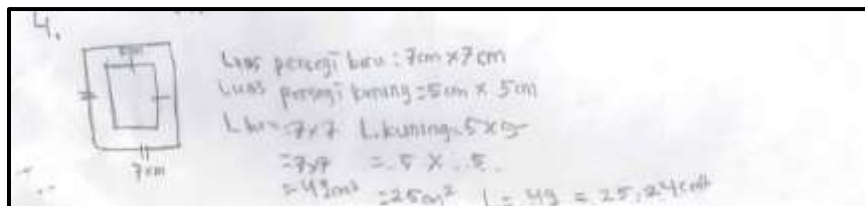 4.
5cm
Luas persegi biru : 7cm x 7cm
Luas persegi kuning = 5cm x 5cm
L biru = 7x7 L. kuning = 5 x 5
= 7x7 = 5 x 5
= 49cm² = 25cm² L = 49 = 25, 24cm²
7cm